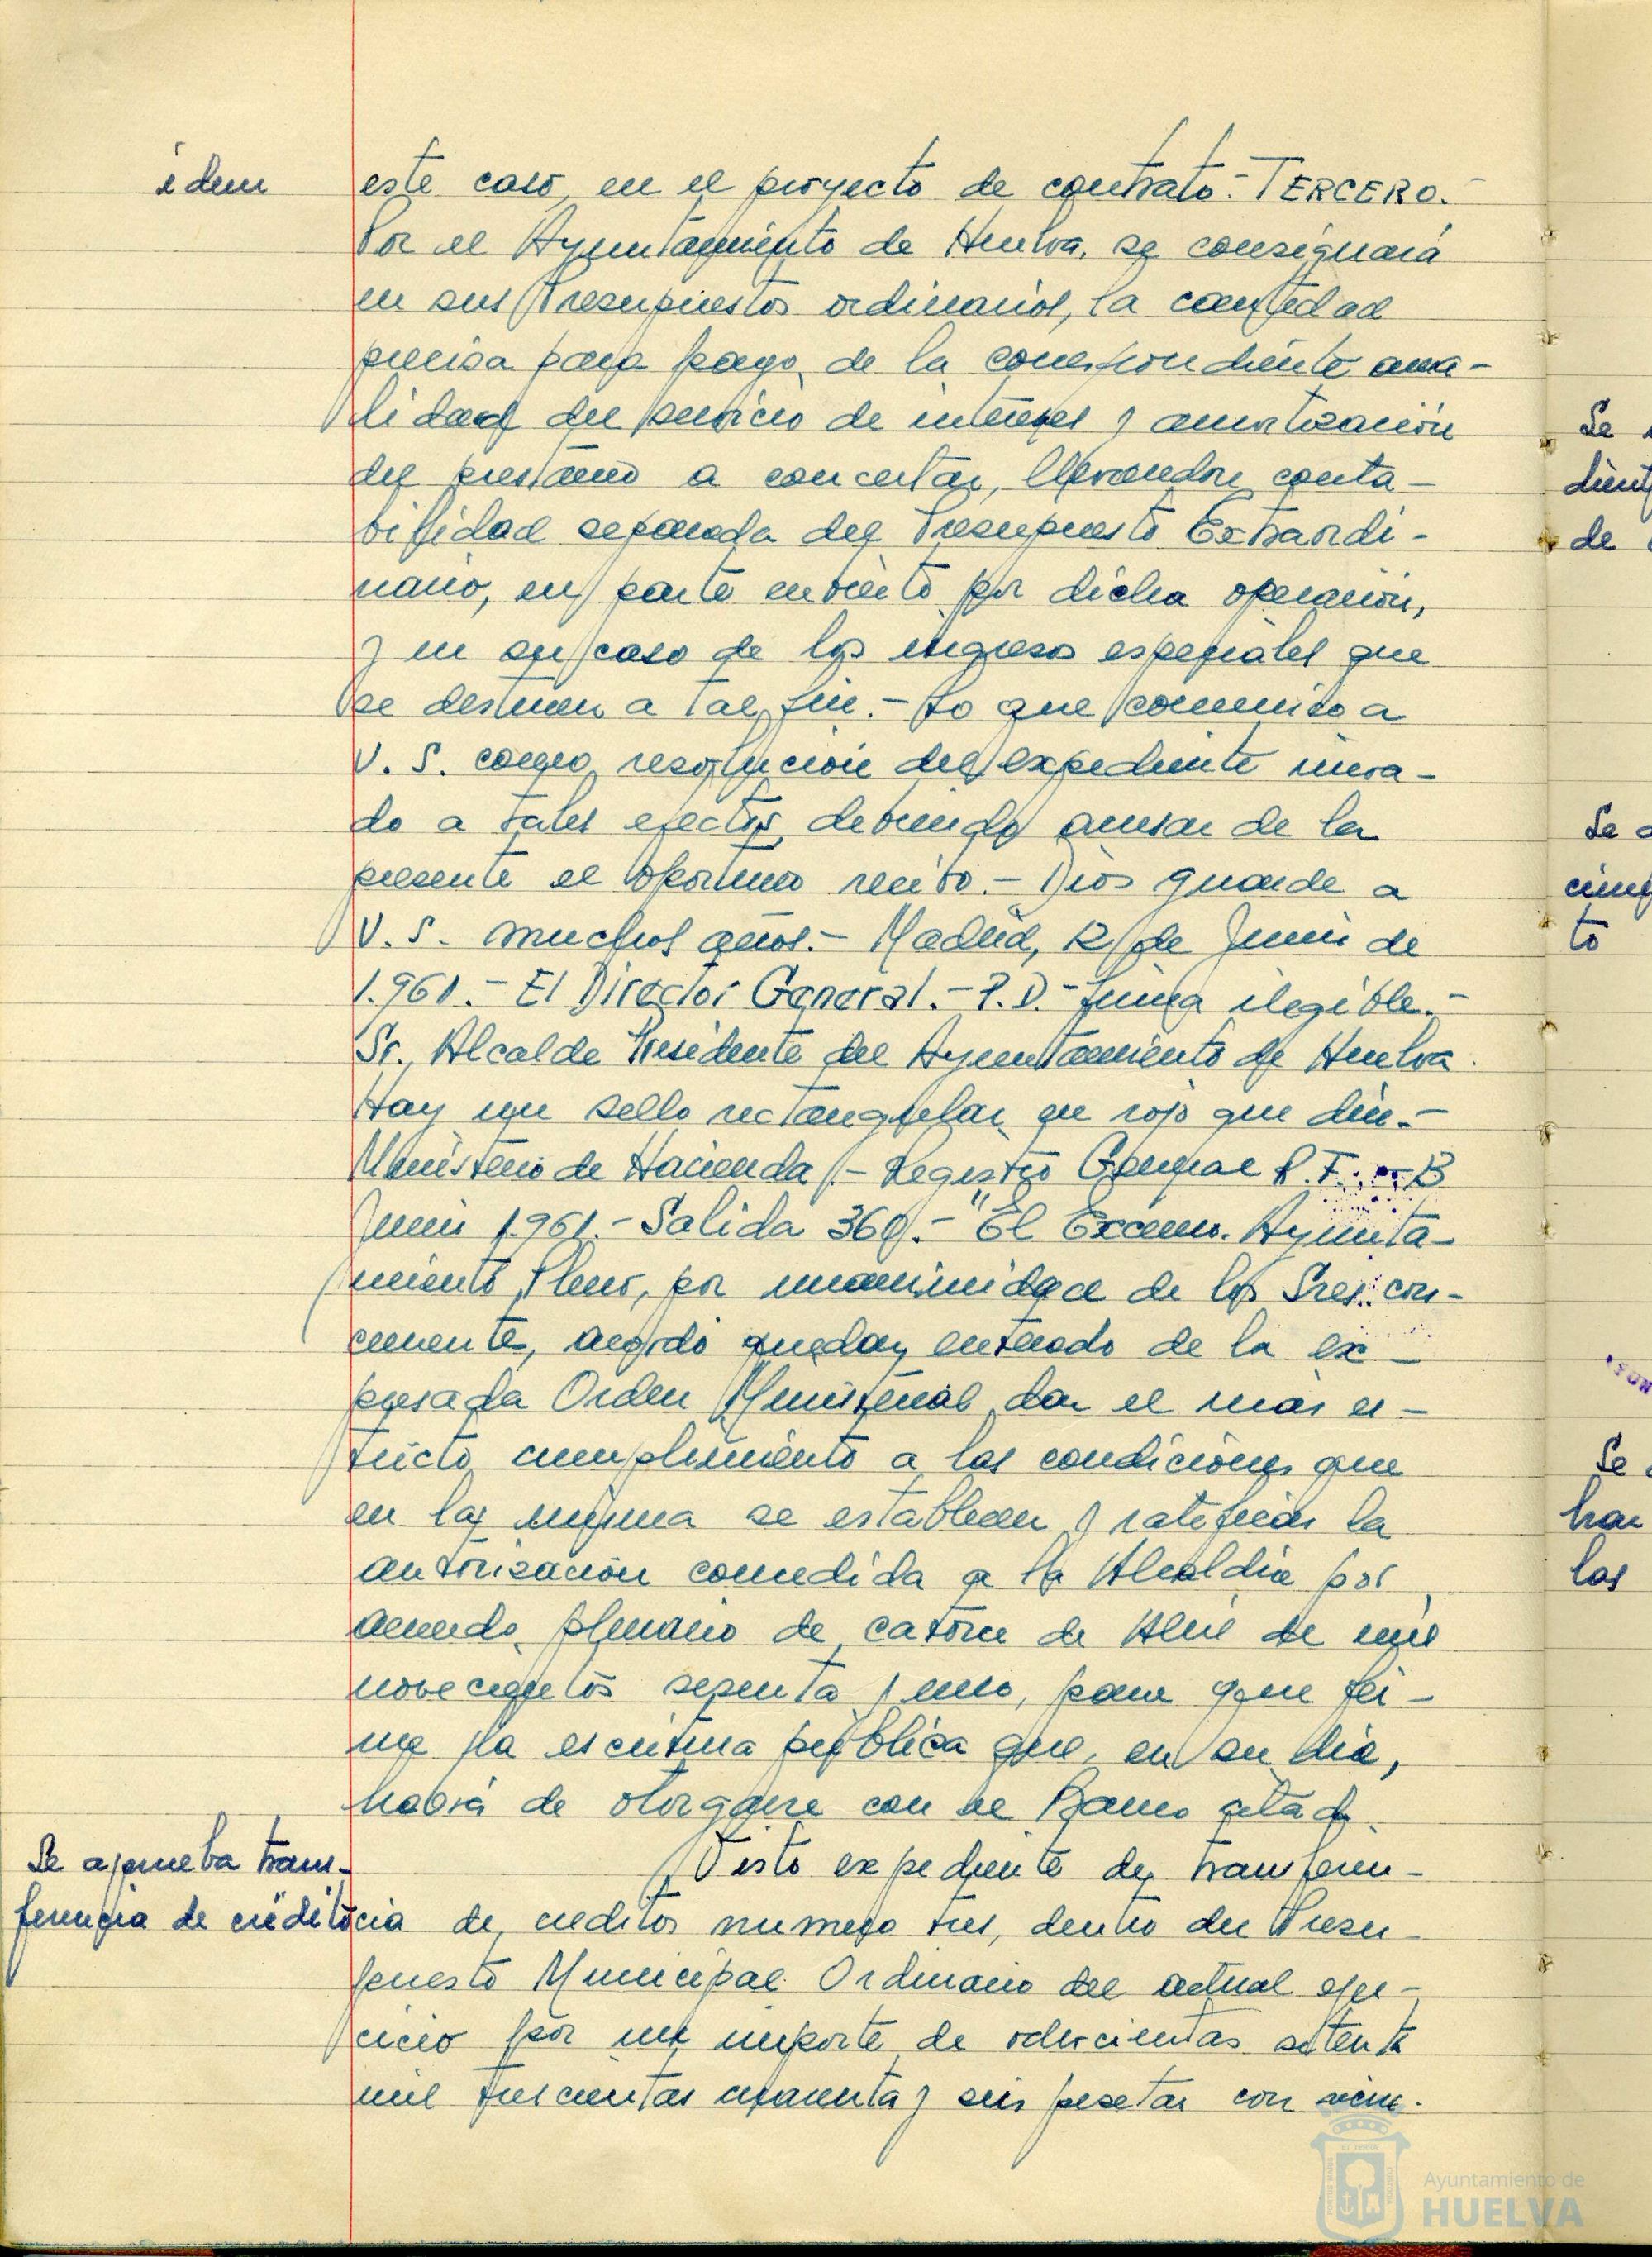 idem
este caso, en el proyecto de contrato.- TERCERO.-
Por el Ayuntamiento de Huelva, se consignará
en sus Presupuestos ordinarios, la cantidad
precisa para pago de la correspondiente anua-
lidad del servicio de intereses y amortización
del prestamo a concertar, llevandose conta-
bilidad separada del Presupuesto Extraordi-
nario, en parte cubierto por dicha operación,
y en su caso de los ingresos especiales que
se destinen a tal fin.- Lo que comunico a
V. S. como resolución del expediente incoa-
do a tales efectos, debiendo acusar de la
presente el oportuno recibo.- Dios guarde a
V. S. muchos años.- Madrid, 12 de Junio de
1.961.- El Director General.- P.D.- firma ilegible.-
Sr. Alcalde Presidente del Ayuntamiento de Huelva.
Hay un sello rectangular en rojo que dice.-
Ministerio de Hacienda.- Registro General
Junio 1.961.- Salida 360.- "El Excmo. Ayunta-
miento Pleno, por unanimidad de los Sres. con-
currente, acordó quedar enterado de la ex-
presada Orden Ministerial, dar el más es-
tricto cumplimiento a las condiciones que
en la misma se establecen y ratificar la
autorización concedida a la Alcaldia por
acuerdo plenario de catorce de Abril de mil
novecientos sesenta y uno, para que fir-
me la escritura pública que, en su dia,
habrá de otorgarse con el Banco citado.
Se aprueba trans-
ferencia de crédito
Visto expediente de transferen-
cia de creditos numero tres, dentro del Presu-
puesto Municipal Ordinario del actual ejer-
cicio por un importe de ochocientas setenta
mil trescientas cuarenta y seis pesetas con
Se
de
Se
to
Se
las
Ayuntamiento de
HUELVA